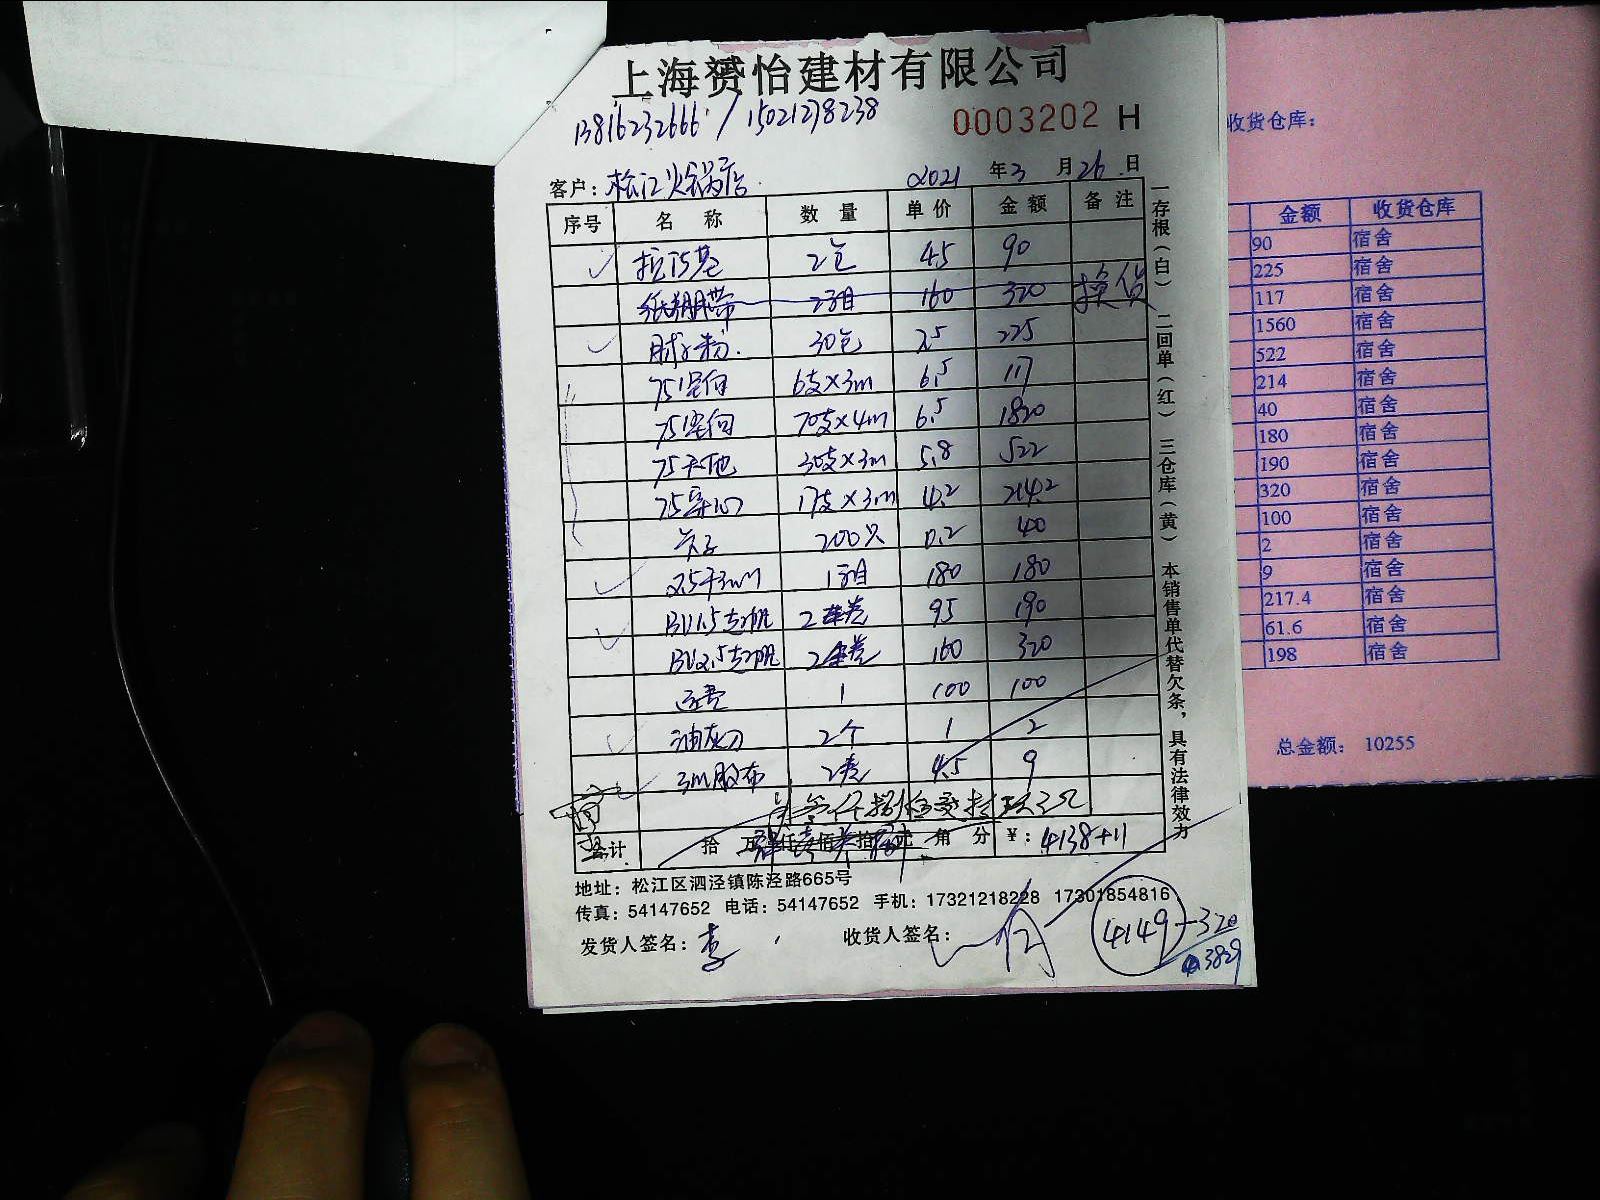 上海赟怡建材有限公司
13816232666 / 15021278238
0003202 H
客户：松江火锅店
2021 年 3 月 26 日
序号 名 称 数 量 单价 金额 备注
拉法基 2包 45 90
纸绷带 2箱 160 320 换货
腻子粉 30包 7.5 225
75竖向 6支×3m 6.5 117
75竖向 70支×4m 6.5 1820
75天地 30支×3m 5.8 522
75穿心 17支×3m 4.2 214.2
卡子 200只 0.2 40
2.5干 1箱 180 180
BV1.5 2卷 95 190
BV2.5 2卷 160 320
运费 1 100 100
油灰刀 2个 1 2
3m胶布 2卷 4.5 9
合计 拾 万 仟 佰 拾 元 角 分 ￥：4138+11
地址：松江区泗泾镇陈泾路665号
传真：54147652 电话：54147652 手机：17321218228 17301854816
发货人签名：李 收货人签名：
4149-320
3829
一存根（白） 二回单（红） 三仓库（黄） 本销售单代替欠条，具有法律效力
收货仓库：
金额 收货仓库
90 宿舍
225 宿舍
117 宿舍
1560 宿舍
522 宿舍
214 宿舍
40 宿舍
180 宿舍
190 宿舍
320 宿舍
100 宿舍
2 宿舍
9 宿舍
217.4 宿舍
61.6 宿舍
198 宿舍
总金额： 10255